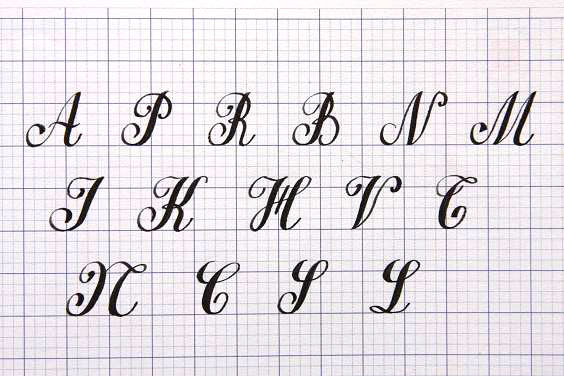 A P R B N M
I K H V T
N C S L